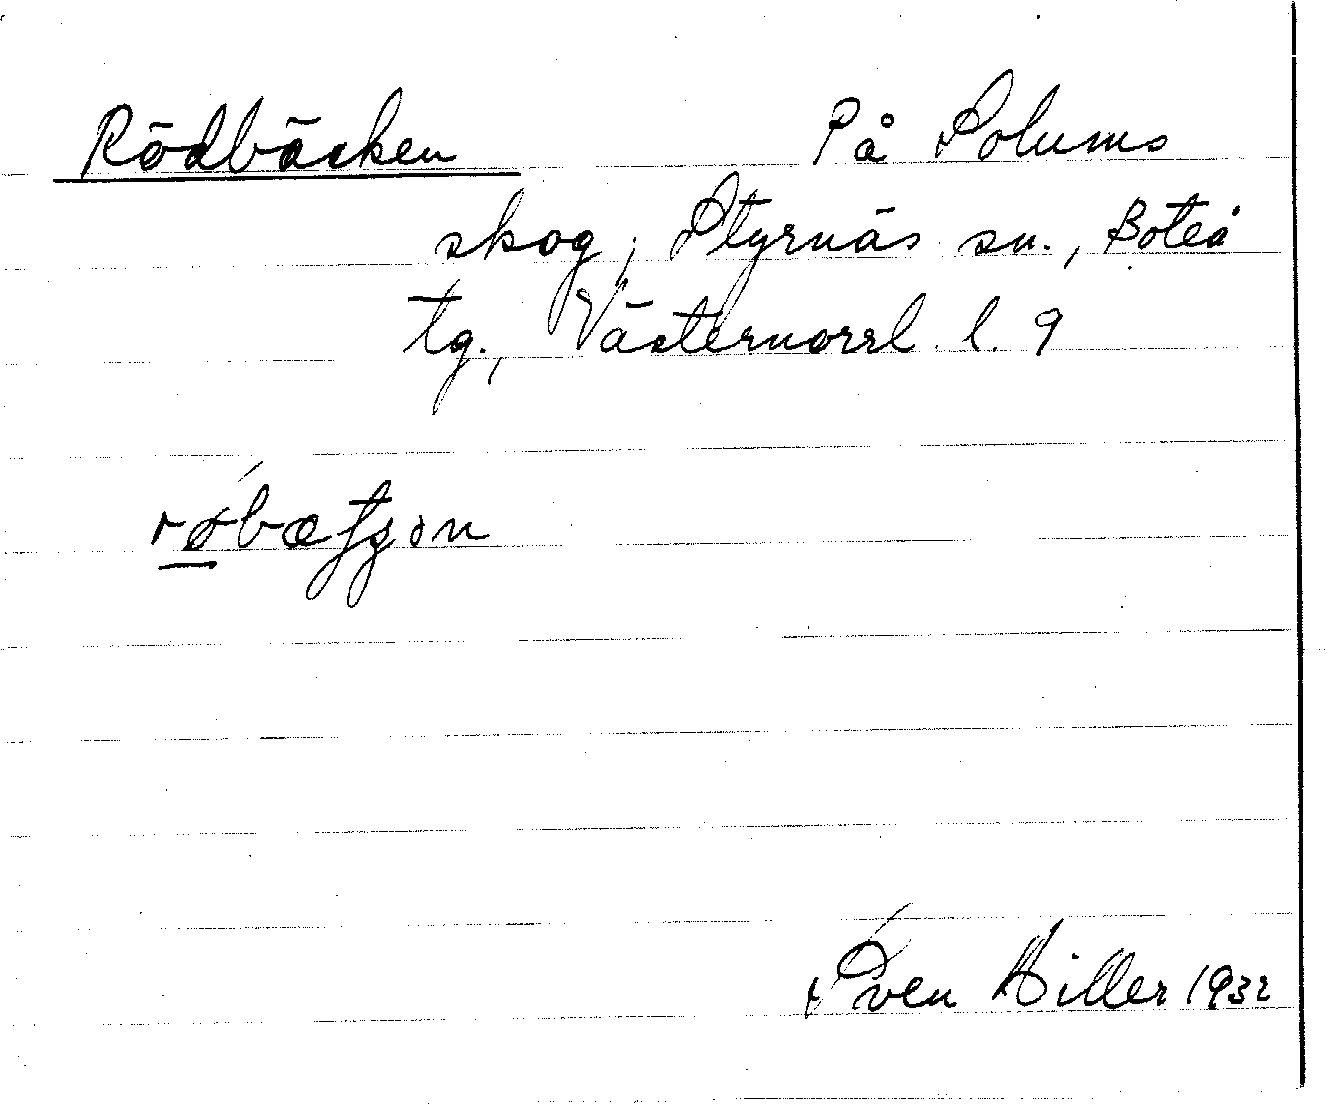 Rödbäcken På Solums
skog, Styrnäs sn., Boteå
tg., Västernorrl. l. 9
Sven Hiller 1932